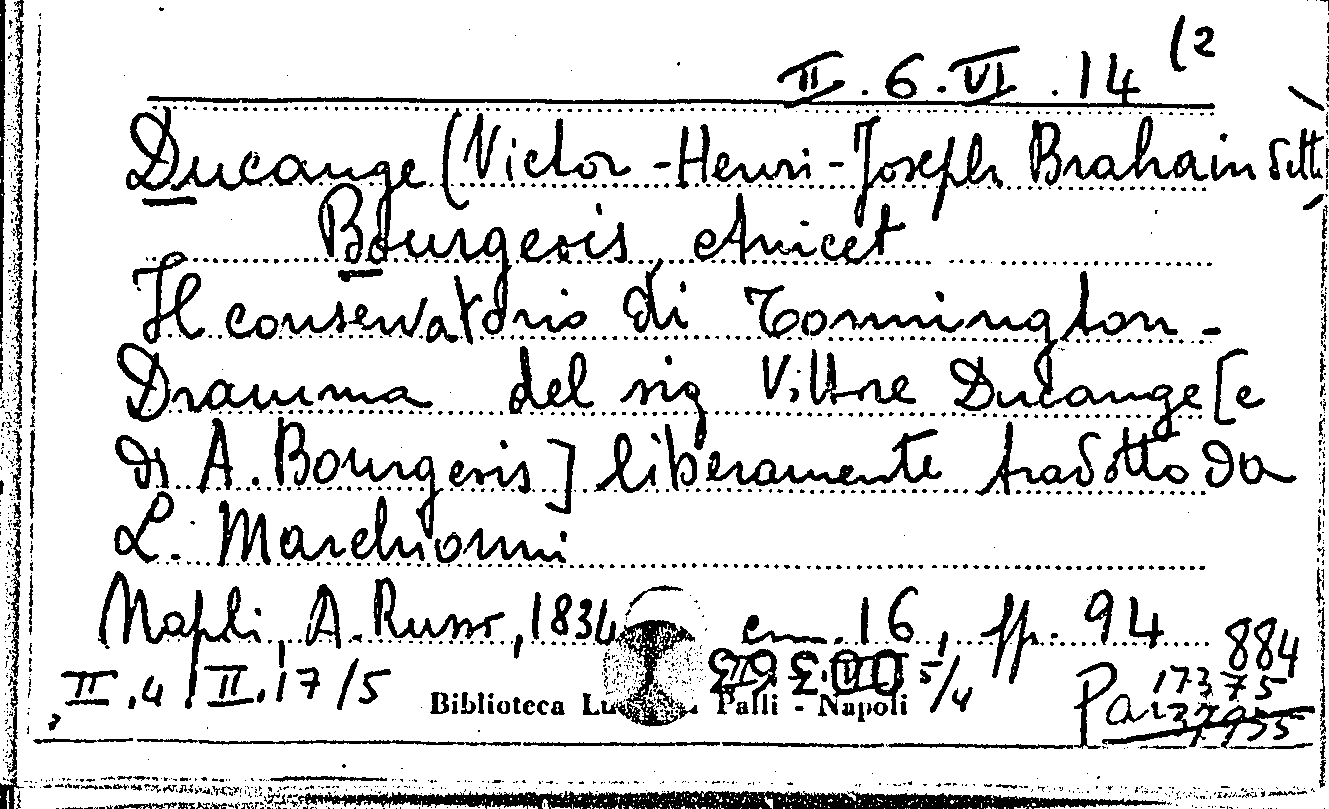 II.6.VI.14 (2
Ducange (Victor-Henri-Joseph Brahain detto
Bourgeois, Anicet
Il conservatorio di Tonnington -
Dramma del sig Vittore Ducange [e
di A. Bourgeois] liberamente tradotto da
L. Marchionni
Napoli, A. Russo, 1834 cm. 16, pp. 94
884
II.4.II.17/5 5/4 17375
Biblioteca Palli - Napoli Par